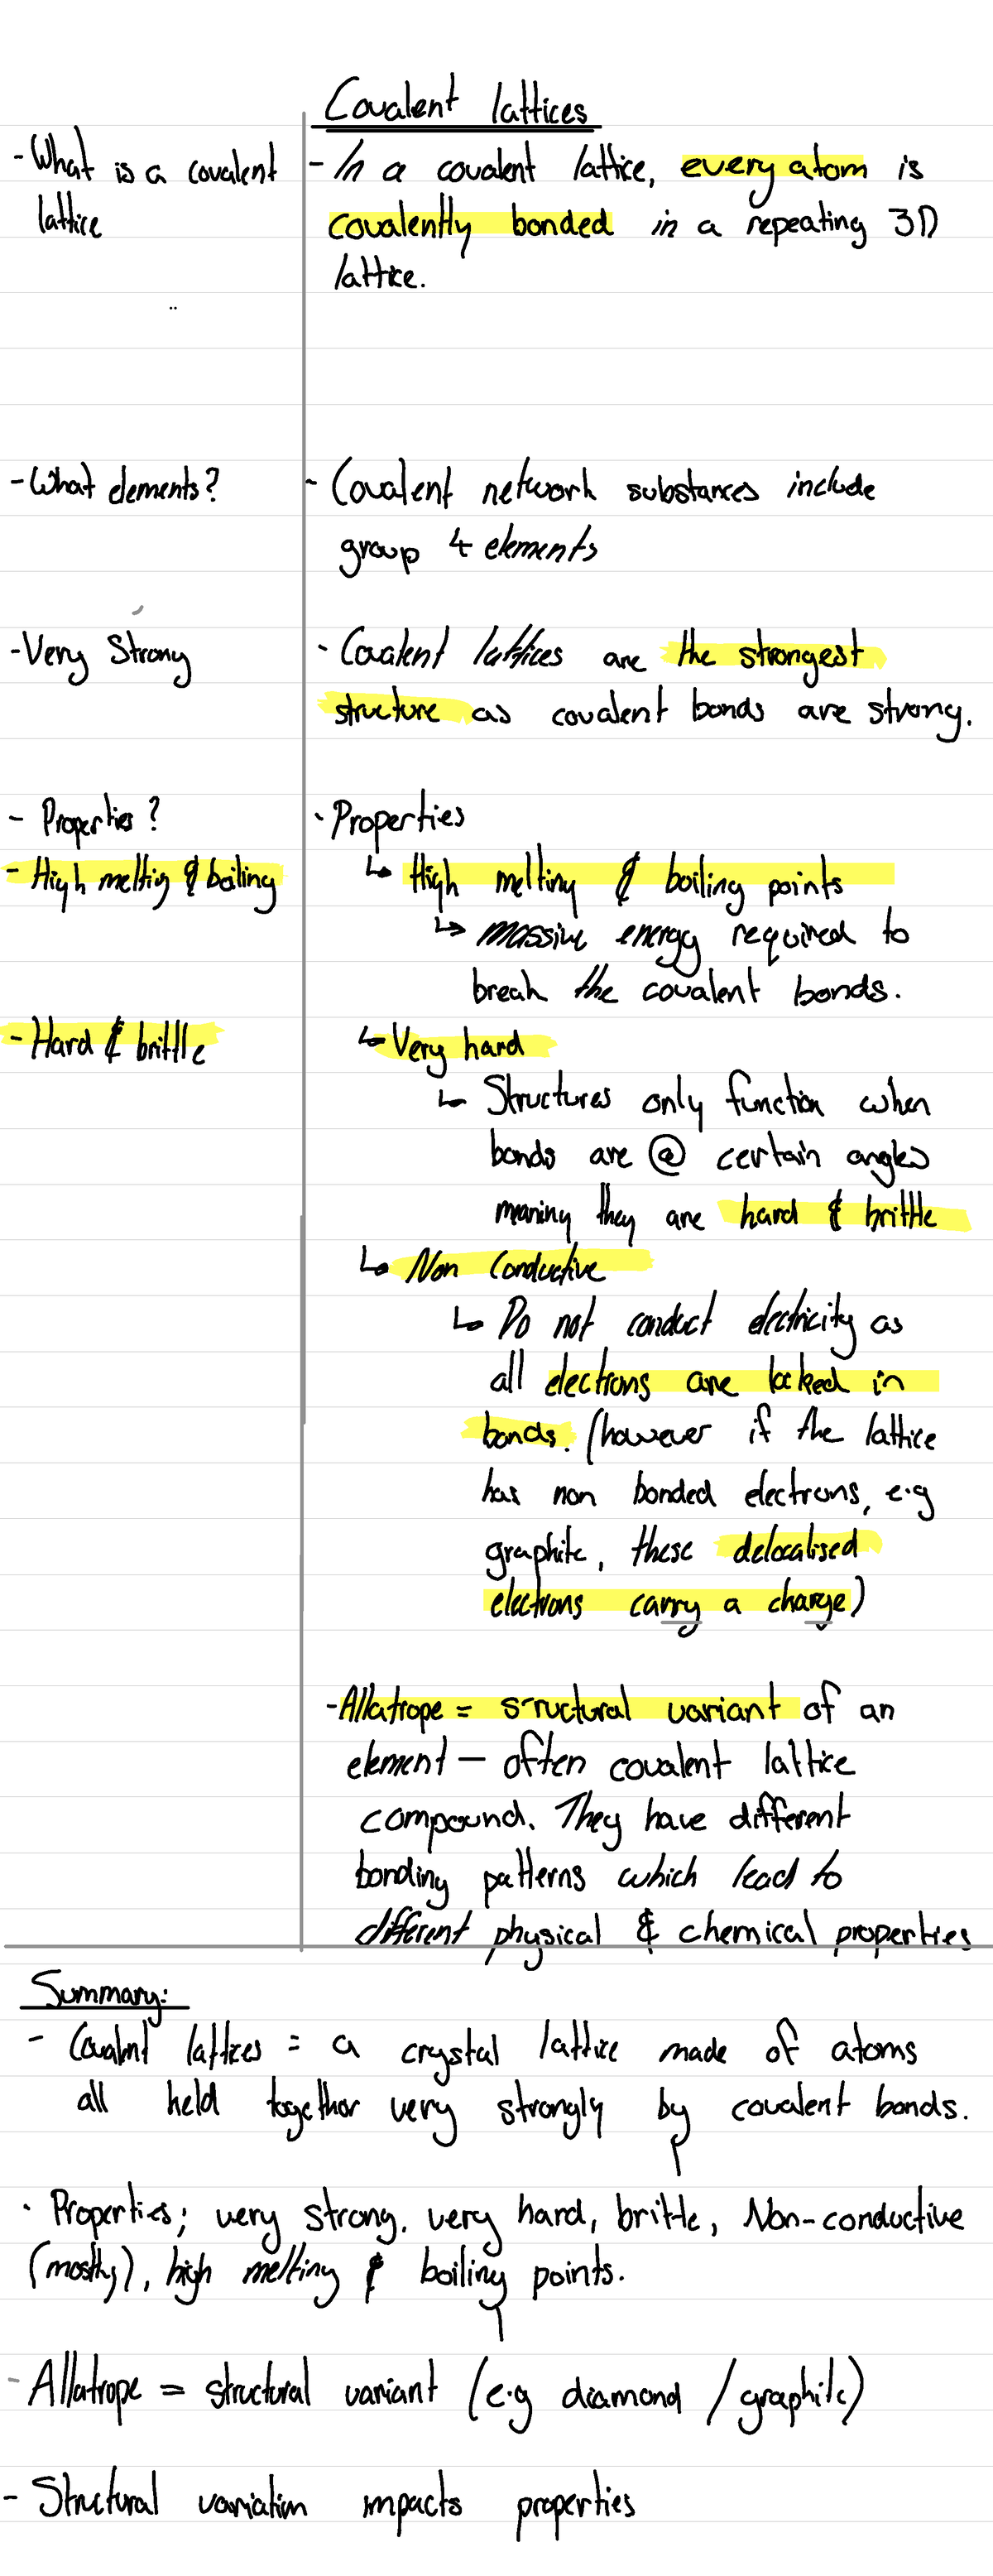 Covalent lattices
- What is a covalent
lattice
- In a covalent lattice, every atom is
covalently bonded in a repeating 3D
lattice.
- What elements?
- Covalent network substances include
group 4 elements
- Very Strong
- Covalent lattices are the strongest
structure as covalent bonds are strong.
- Properties?
- High melting & boiling
- Hard & brittle
· Properties
↳ High melting & boiling points
↳ massive energy required to
break the covalent bonds.
↳ Very hard
↳ Structures only function when
bonds are @ certain angles
meaning they are hard & brittle
↳ Non Conductive
↳ Do not conduct electricity as
all electrons are locked in
bonds. (however if the lattice
has non bonded electrons, e.g
graphite, these delocalised
electrons carry a charge)
- Allatrope = structural variant of an
element – often covalent lattice
compound. They have different
bonding patterns which lead to
different physical & chemical properties
Summary:
- Covalent lattices = a crystal lattice made of atoms
all held together very strongly by covalent bonds.
· Properties; very strong, very hard, brittle, Non-conductive
(mostly), high melting & boiling points.
- Allatrope = structural variant (e.g diamond / graphite)
- Structural variation impacts properties